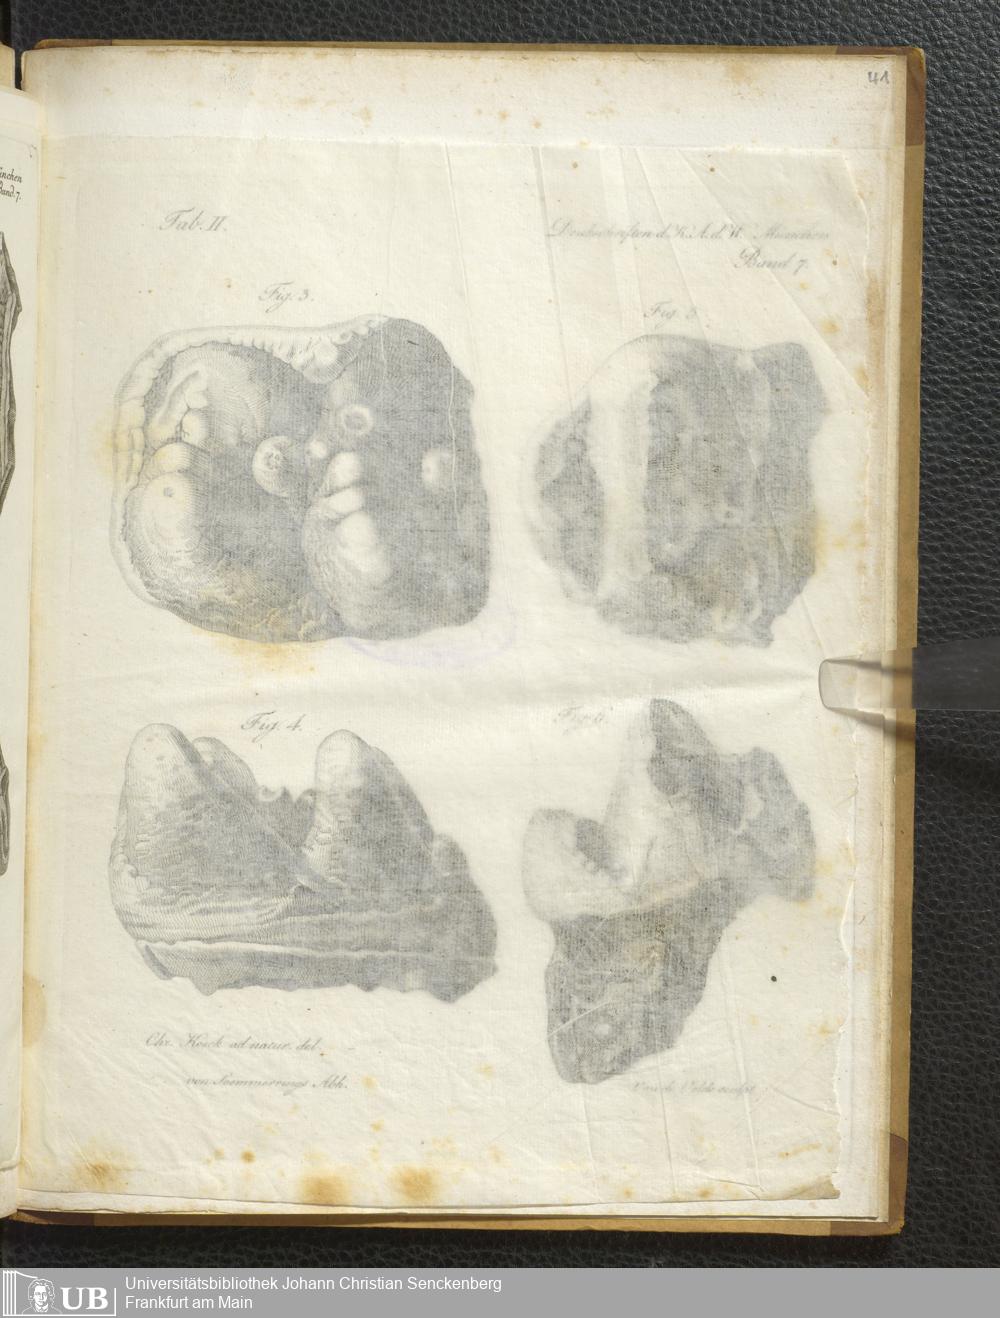 41
inchen
Band. 7.
Tab. II.
Denkschriften d. K. A. d. W. München
Band 7.
Fig. 3.
Fig. 5.
Fig. 4.
Fig. 6.
Chr. Koeck ad natur. del.
von Soemmerrings Abh.
sculps.
UB
Universitätsbibliothek Johann Christian Senckenberg
Frankfurt am Main